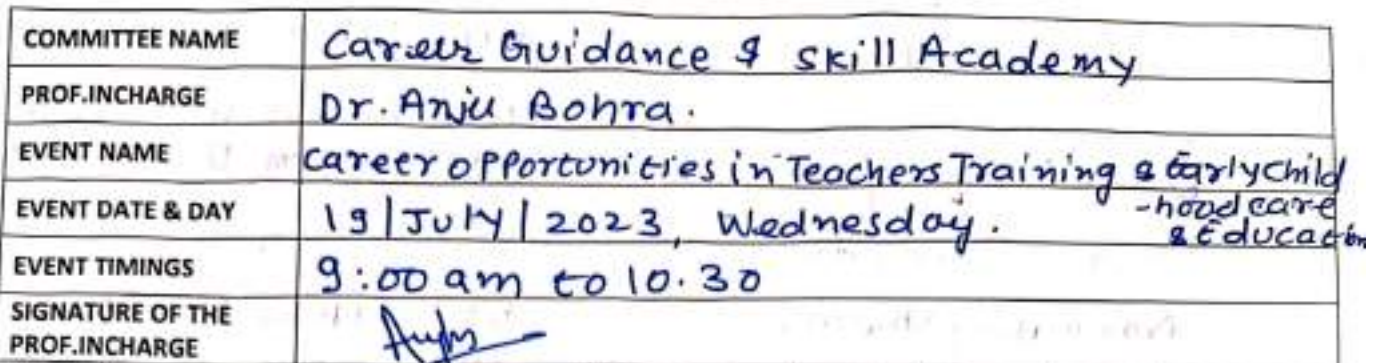 COMMITTEE NAME Career Guidance & Skill Academy
PROF.INCHARGE Dr. Anju Bohra.
EVENT NAME career opportunities in Teachers Training & Early Child
-hood care
& Education
EVENT DATE & DAY 19|July|2023, Wednesday.
EVENT TIMINGS 9:00 am to 10.30
SIGNATURE OF THE
PROF.INCHARGE